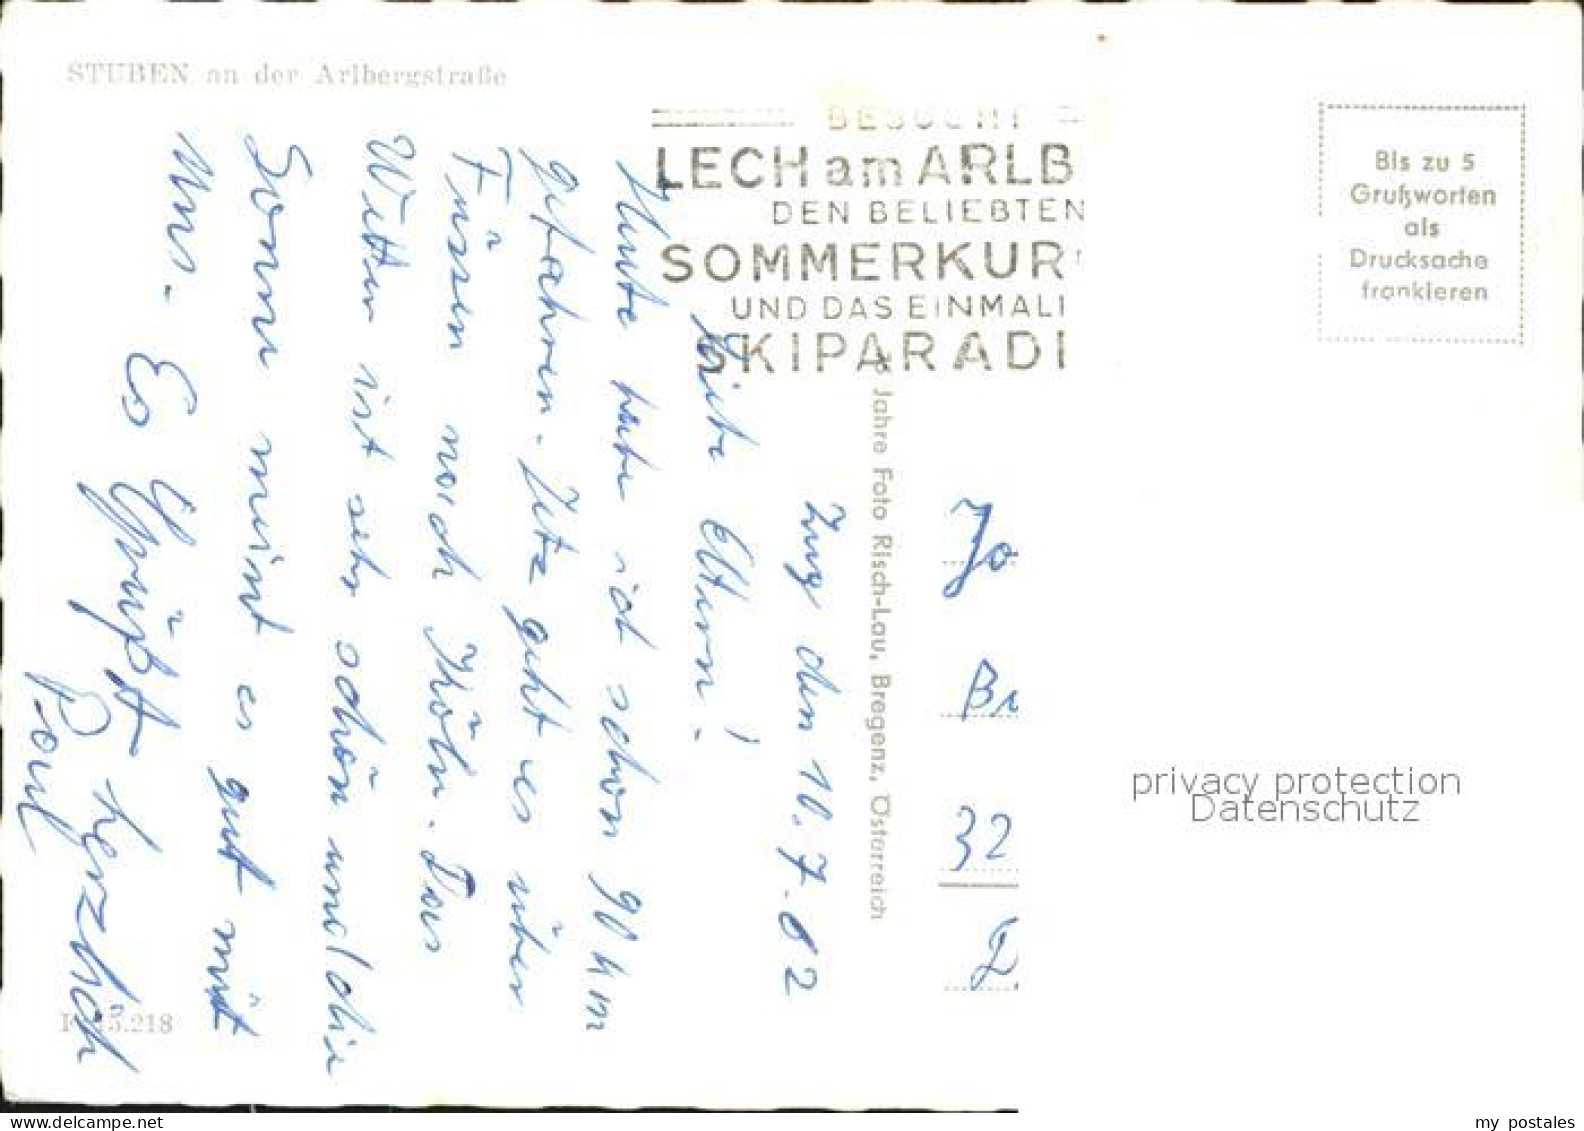 STUBEN an der Arlbergstraße
BESUCHT
LECH am ARLB
DEN BELIEBTEN
SOMMERKUR
UND DAS EINMALI
SKIPARADI
Bis zu 5
Grußworten
als
Drucksache
frankieren
Zug den 10.7.62
Liebe Eltern!
Heute habe ich schon 90 km
gefahren. Jetz geht es über
Füssen nach Köln. Das
Wetter ist sehr schön und die
Sonne meint es gut mit
uns. Es Grüßt herzlich
Paul
Jahre Foto Risch-Lau, Bregenz, Österreich
Jo
Br
32
15.218
privacy protection
Datenschutz
delcampe.net
my postales